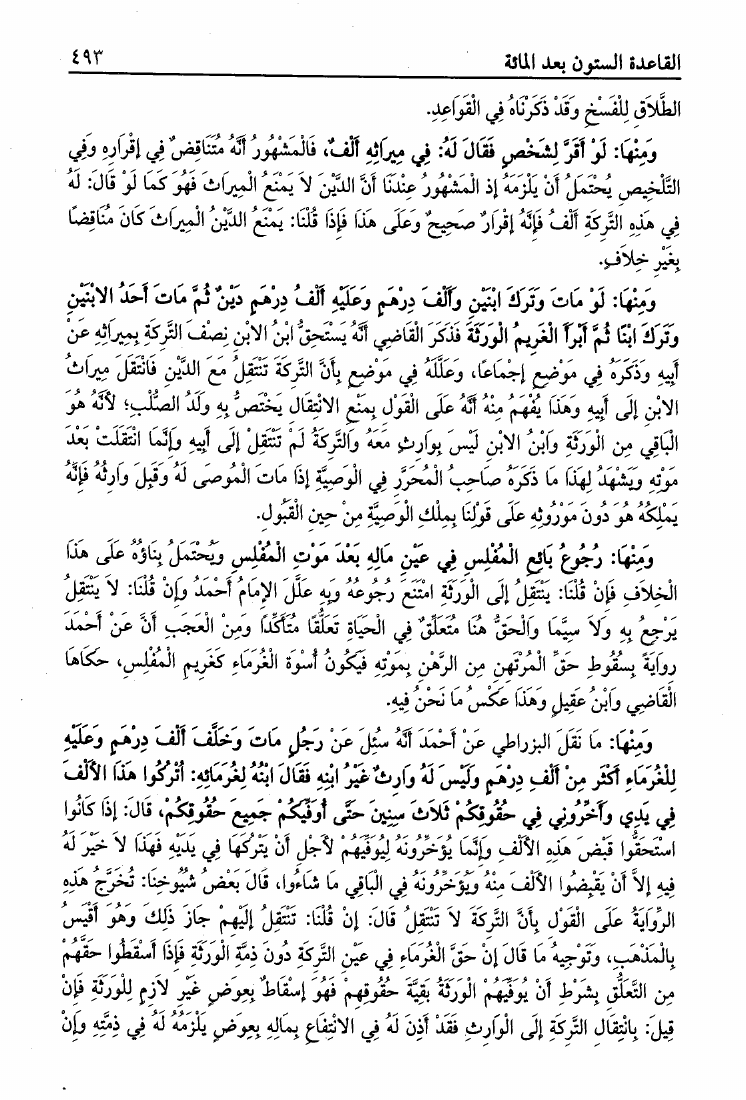 القاعدة الستون بعد المائة ٤٩٣
الطَّلَاقِ لِلْفَسْخِ وَقَدْ ذَكَرْنَاهُ فِي الْقَوَاعِدِ.
وَمِنْهَا: لَوْ أَقَرَّ لِشَخْصٍ فَقَالَ لَهُ: فِي مِيرَاثِهِ أَلْفٌ، فَالْمَشْهُورُ أَنَّهُ مُتَنَاقِضٌ فِي إِقْرَارِهِ وَفِي
التَّلْخِيصِ يُحْتَمَلُ أَنْ يَلْزَمَهُ إِذِ الْمَشْهُورُ عِنْدَنَا أَنَّ الدَّيْنَ لَا يَمْنَعُ الْمِيرَاثَ فَهُوَ كَمَا لَوْ قَالَ: لَهُ
فِي هَذِهِ التَّرِكَةِ أَلْفٌ فَإِنَّهُ إِقْرَارٌ صَحِيحٌ وَعَلَى هَذَا فَإِذَا قُلْنَا: يَمْنَعُ الدَّيْنُ الْمِيرَاثَ كَانَ مُنَاقِضًا
بِغَيْرِ خِلَافٍ.
وَمِنْهَا: لَوْ مَاتَ وَتَرَكَ ابْنَيْنِ وَأَلْفَ دِرْهَمٍ وَعَلَيْهِ أَلْفُ دِرْهَمٍ دَيْنٌ ثُمَّ مَاتَ أَحَدُ الِابْنَيْنِ
وَتَرَكَ ابْنًا ثُمَّ أَبْرَأَ الْغَرِيمُ الْوَرَثَةَ فَذَكَرَ الْقَاضِي أَنَّهُ يَسْتَحِقُّ ابْنُ الِابْنِ نِصْفَ التَّرِكَةِ بِمِيرَاثِهِ عَنْ
أَبِيهِ وَذَكَرَهُ فِي مَوْضِعٍ إِجْمَاعًا، وَعَلَّلَهُ فِي مَوْضِعٍ بِأَنَّ التَّرِكَةَ تَنْتَقِلُ مَعَ الدَّيْنِ فَانْتَقَلَ مِيرَاثُ
الِابْنِ إِلَى أَبِيهِ وَهَذَا يُفْهَمُ مِنْهُ أَنَّهُ عَلَى الْقَوْلِ بِمَنْعِ الِانْتِقَالِ يَخْتَصُّ بِهِ وَلَدُ الصُّلْبِ؛ لِأَنَّهُ هُوَ
الْبَاقِي مِنَ الْوَرَثَةِ وَابْنُ الِابْنِ لَيْسَ بِوَارِثٍ مَعَهُ وَالتَّرِكَةُ لَمْ تَنْتَقِلْ إِلَى أَبِيهِ وَإِنَّمَا انْتَقَلَتْ بَعْدَ
مَوْتِهِ وَيَشْهَدُ لِهَذَا مَا ذَكَرَهُ صَاحِبُ الْمُحَرَّرِ فِي الْوَصِيَّةِ إِذَا مَاتَ الْمُوصَى لَهُ وَقَبِلَ وَارِثُهُ فَإِنَّهُ
يَمْلِكُهُ هُوَ دُونَ مَوْرُوثِهِ عَلَى قَوْلِنَا بِمِلْكِ الْوَصِيَّةِ مِنْ حِينِ الْقَبُولِ.
وَمِنْهَا: رُجُوعُ بَائِعِ الْمُفْلِسِ فِي عَيْنِ مَالِهِ بَعْدَ مَوْتِ الْمُفْلِسِ وَيُحْتَمَلُ بِنَاؤُهُ عَلَى هَذَا
الْخِلَافِ فَإِنْ قُلْنَا: يَنْتَقِلُ إِلَى الْوَرَثَةِ امْتَنَعَ رُجُوعُهُ وَبِهِ عَلَّلَ الْإِمَامُ أَحْمَدُ وَإِنْ قُلْنَا: لَا يَنْتَقِلُ
يَرْجِعُ بِهِ وَلَا سِيَّمَا وَالْحَقُّ هُنَا مُتَعَلِّقٌ فِي الْحَيَاةِ تَعَلُّقًا مُتَأَكِّدًا وَمِنَ الْعَجَبِ أَنَّ عَنْ أَحْمَدَ
رِوَايَةً بِسُقُوطِ حَقِّ الْمُرْتَهِنِ مِنَ الرَّهْنِ بِمَوْتِهِ فَيَكُونُ أُسْوَةَ الْغُرَمَاءِ كَغَرِيمِ الْمُفْلِسِ، حَكَاهَا
الْقَاضِي وَابْنُ عَقِيلٍ وَهَذَا عَكْسُ مَا نَحْنُ فِيهِ.
وَمِنْهَا: مَا نَقَلَ البزراطي عَنْ أَحْمَدَ أَنَّهُ سُئِلَ عَنْ رَجُلٍ مَاتَ وَخَلَّفَ أَلْفَ دِرْهَمٍ وَعَلَيْهِ
لِلْغُرَمَاءِ أَكْثَرَ مِنْ أَلْفِ دِرْهَمٍ وَلَيْسَ لَهُ وَارِثٌ غَيْرُ ابْنِهِ فَقَالَ ابْنُهُ لِغُرَمَائِهِ: اُتْرُكُوا هَذَا الْأَلْفَ
فِي يَدِي وَأَخِّرُونِي فِي حُقُوقِكُمْ ثَلَاثَ سِنِينَ حَتَّى أُوَفِّيَكُمْ جَمِيعَ حُقُوقِكُمْ، قَالَ: إِذَا كَانُوا
اسْتَحَقُّوا قَبْضَ هَذِهِ الْأَلْفِ وَإِنَّمَا يُؤَخِّرُونَهُ لِيُوَفِّيَهُمْ لِأَجْلِ أَنْ يَتْرُكَهَا فِي يَدَيْهِ فَهَذَا لَا خَيْرَ لَهُ
فِيهِ إِلَّا أَنْ يَقْبِضُوا الْأَلْفَ مِنْهُ وَيُؤَخِّرُونَهُ فِي الْبَاقِي مَا شَاءُوا، قَالَ بَعْضُ شُيُوخِنَا: تُخَرَّجُ هَذِهِ
الرِّوَايَةُ عَلَى الْقَوْلِ بِأَنَّ التَّرِكَةَ لَا تَنْتَقِلُ قَالَ: إِنْ قُلْنَا: تَنْتَقِلُ إِلَيْهِمْ جَازَ ذَلِكَ وَهُوَ أَقْيَسُ
بِالْمَذْهَبِ، وَتَوْجِيهُ مَا قَالَ إِنَّ حَقَّ الْغُرَمَاءِ فِي عَيْنِ التَّرِكَةِ دُونَ ذِمَّةِ الْوَرَثَةِ فَإِذَا أَسْقَطُوا حَقَّهُمْ
مِنَ التَّعَلُّقِ بِشَرْطِ أَنْ يُوَفِّيَهُمُ الْوَرَثَةُ بَقِيَّةَ حُقُوقِهِمْ فَهُوَ إِسْقَاطٌ بِعِوَضٍ غَيْرِ لَازِمٍ لِلْوَرَثَةِ فَإِنْ
قِيلَ: بِانْتِقَالِ التَّرِكَةِ إِلَى الْوَارِثِ فَقَدْ أَذِنَ لَهُ فِي الِانْتِفَاعِ بِمَالِهِ بِعِوَضٍ يَلْزَمُهُ لَهُ فِي ذِمَّتِهِ وَإِنْ